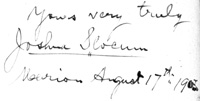 Yours very truly
Joshua Slocum
Marion August 17th